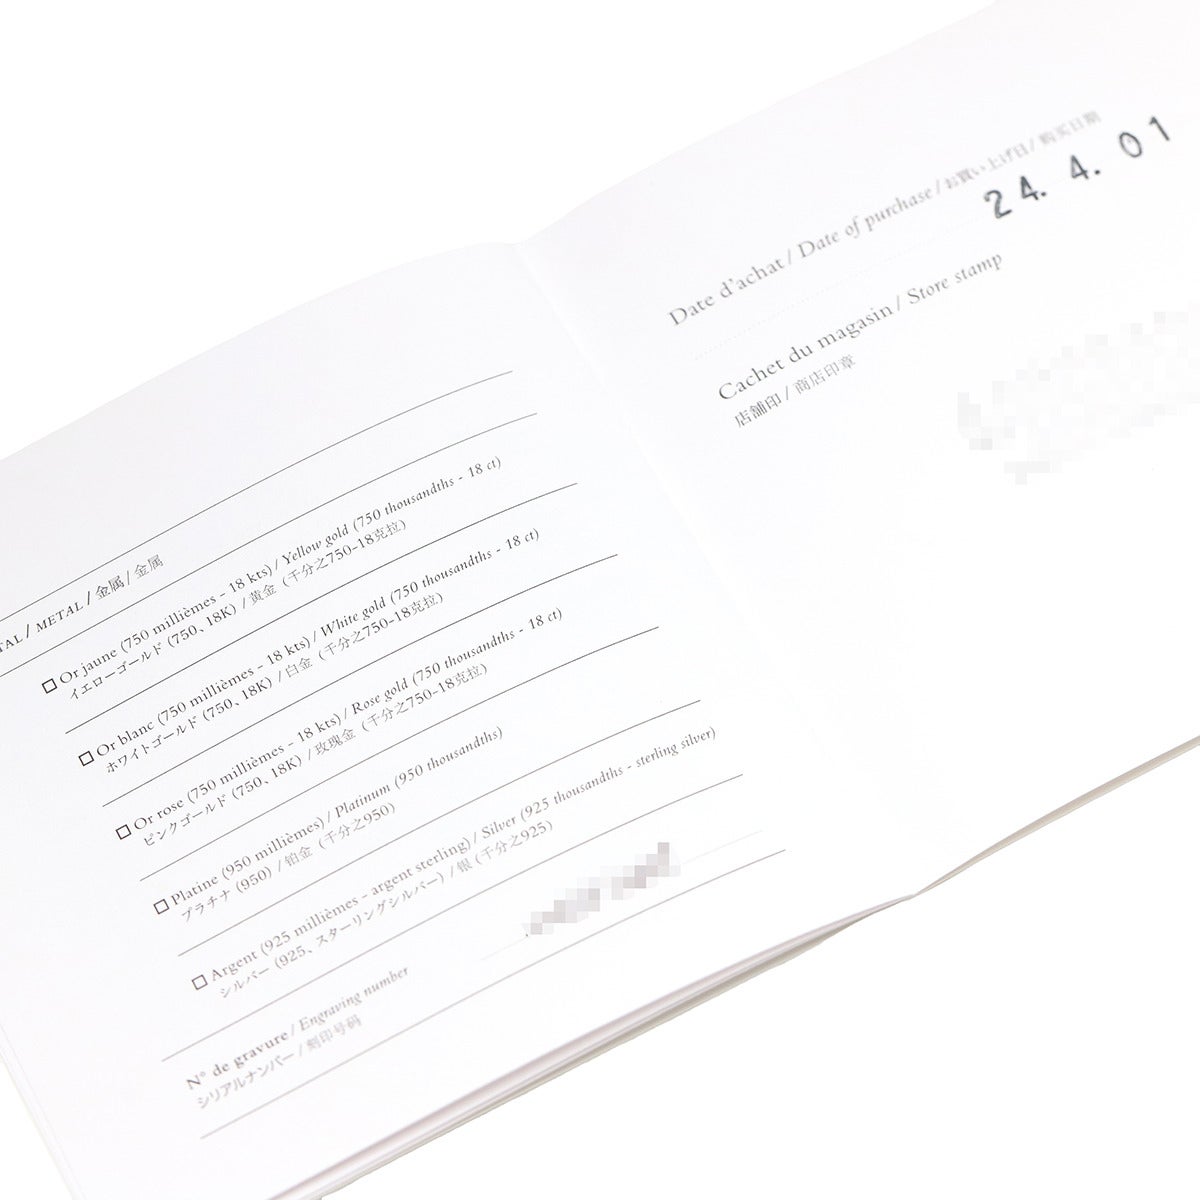 TAL / METAL / 金属 / 金属
Or jaune (750 millièmes - 18 kts) / Yellow gold (750 thousandths - 18 ct)
イエローゴールド (750、18K) / 黄金 (千分之750-18克拉)
Or blanc (750 millièmes - 18 kts) / White gold (750 thousandths - 18 ct)
ホワイトゴールド (750、18K) / 白金 (千分之750-18克拉)
Or rose (750 millièmes - 18 kts) / Rose gold (750 thousandths - 18 ct)
ピンクゴールド (750、18K) / 玫瑰金 (千分之750-18克拉)
Platine (950 millièmes) / Platinum (950 thousandths)
プラチナ (950) / 铂金 (千分之950)
Argent (925 millièmes - argent sterling) / Silver (925 thousandths - sterling silver)
シルバー (925、スターリングシルバー) / 银 (千分之925)
N° de gravure / Engraving number
シリアルナンバー / 刻印号码
Date d'achat / Date of purchase / お買い上げ日 / 购买日期
24. 4. 01
Cachet du magasin / Store stamp
店舗印 / 商店印章